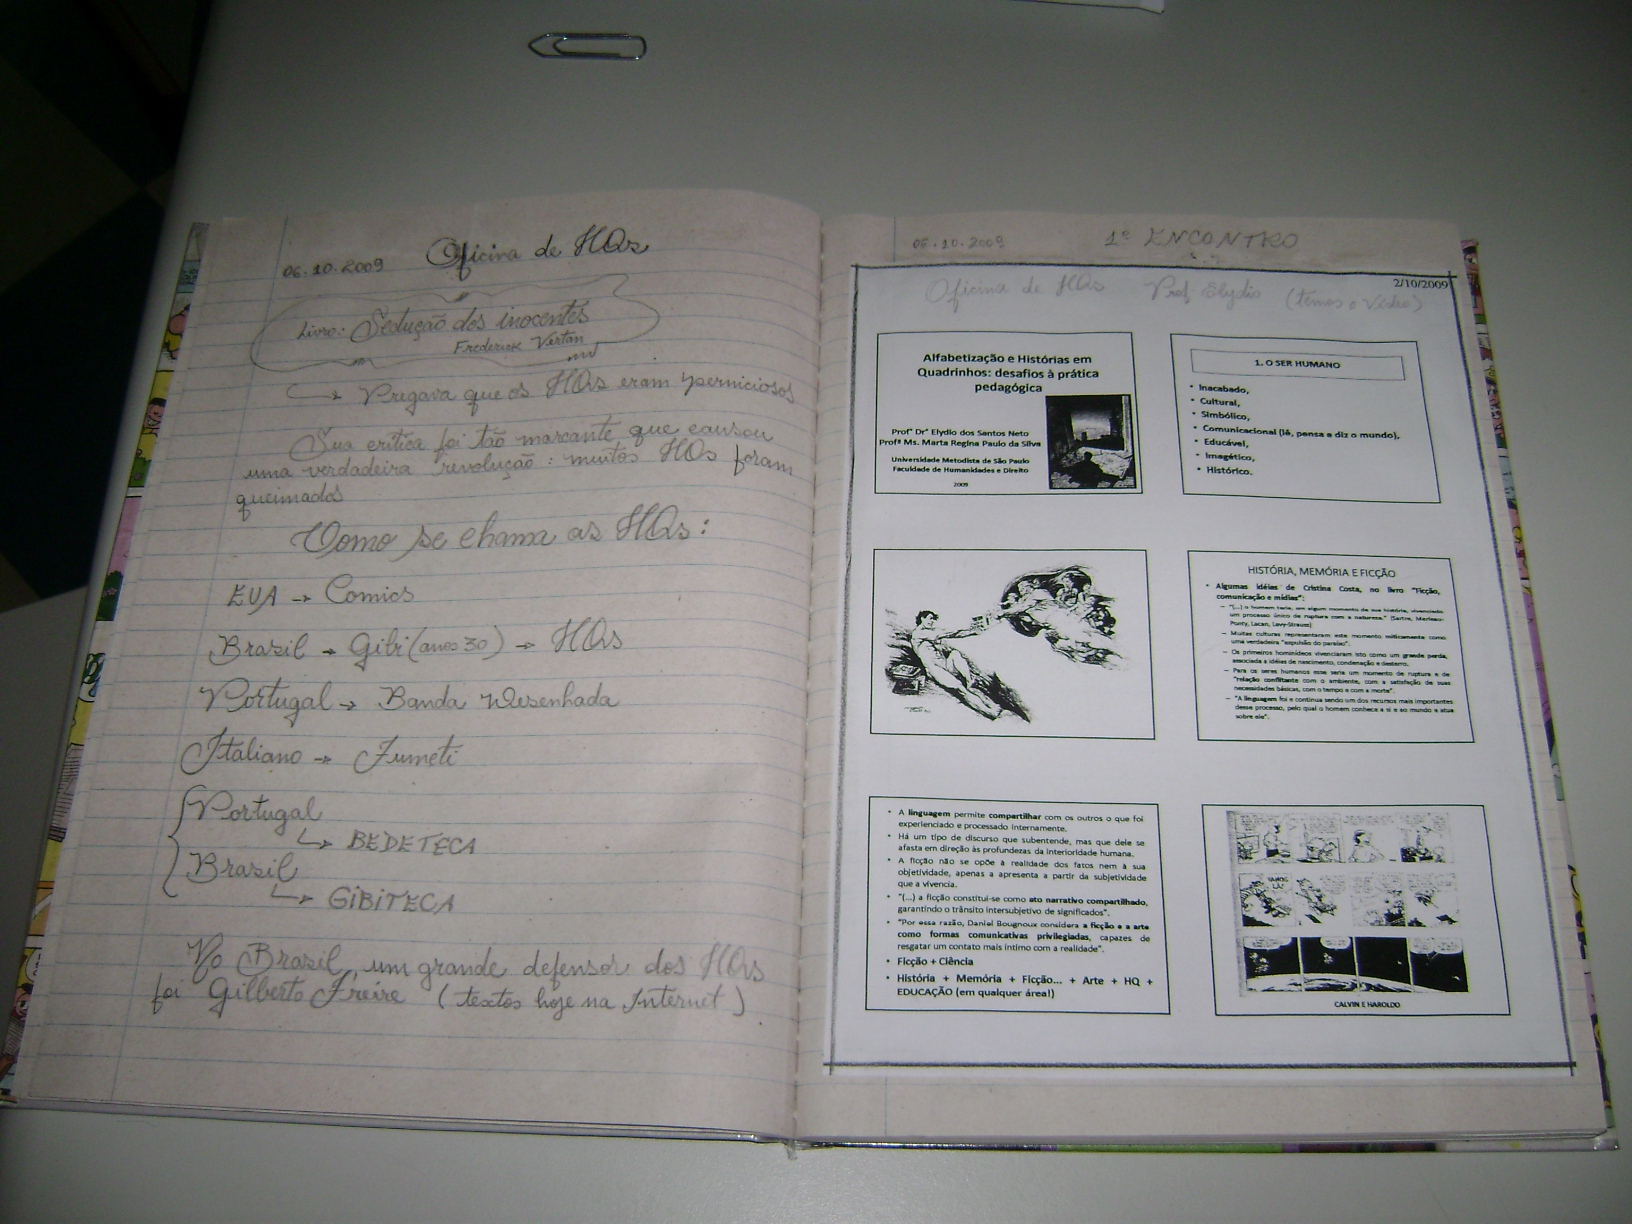 06.10.2009 Oficina de HQs
Livro: Sedução dos inocentes
Frederick Vertan
Pregava que os HQs eram perniciosos
Sua crítica foi tão marcante que causou
uma verdadeira revolução: muitos HQs foram
queimados
Como se chama as HQs:
EUA → Comics
Brasil → Gibi (anos 30) → HQs
Portugal → Banda Desenhada
Italiano → Fumeti
Portugal
↳ BEDETECA
Brasil
↳ GIBITECA
No Brasil, um grande defensor dos HQs
foi Gilberto Freire (textos hoje na Internet)
06.10.2009 1º ENCONTRO
2/10/2009
Oficina de HQs Prof. Elydio (temos o Vídeo)
Alfabetização e Histórias em
Quadrinhos: desafios à prática
pedagógica
Profº Drº Elydio dos Santos Neto
Profª Ms. Marta Regina Paulo da Silva
Universidade Metodista de São Paulo
Faculdade de Humanidades e Direito
2009
1. O SER HUMANO
• Inacabado,
• Cultural,
• Simbólico,
• Comunicacional (lê, pensa e diz o mundo),
• Educável,
• Imagético,
• Histórico.
HISTÓRIA, MEMÓRIA E FICÇÃO
• Algumas idéias de Cristina Costa, no livro "Ficção,
comunicação e mídias":
– "(...) o homem teria, em algum momento de sua história, vivenciado
um processo único de ruptura com a natureza." (Sartre, Merleau-
Ponty, Lacan, Levy-Strauss)
– Muitas culturas representaram este momento miticamente como
uma verdadeira "expulsão do paraíso".
– Os primeiros hominídeos vivenciaram isto como um grande perda,
associada a idéias de nascimento, condenação e desterro.
– Para os seres humanos esse seria um momento de ruptura e de
"relação conflitante com o ambiente, com a satisfação de suas
necessidades básicas, com o tempo e com a morte".
– "A linguagem foi e continua sendo um dos recursos mais importantes
desse processo, pelo qual o homem conhece a si e ao mundo e atua
sobre ele".
• A linguagem permite compartilhar com os outros o que foi
experienciado e processado internamente.
• Há um tipo de discurso que subentende, mas que dele se
afasta em direção às profundezas da interioridade humana.
• A ficção não se opõe à realidade dos fatos nem à sua
objetividade, apenas a apresenta a partir da subjetividade
que a vivencia.
• "(...) a ficção constitui-se como ato narrativo compartilhado,
garantindo o trânsito intersubjetivo de significados".
• "Por essa razão, Daniel Bougnoux considera a ficção e a arte
como formas comunicativas privilegiadas, capazes de
resgatar um contato mais íntimo com a realidade".
• Ficção + Ciência
• História + Memória + Ficção... + Arte + HQ +
EDUCAÇÃO (em qualquer área!)
VAMOS
LÁ!
CALVIN E HAROLDO